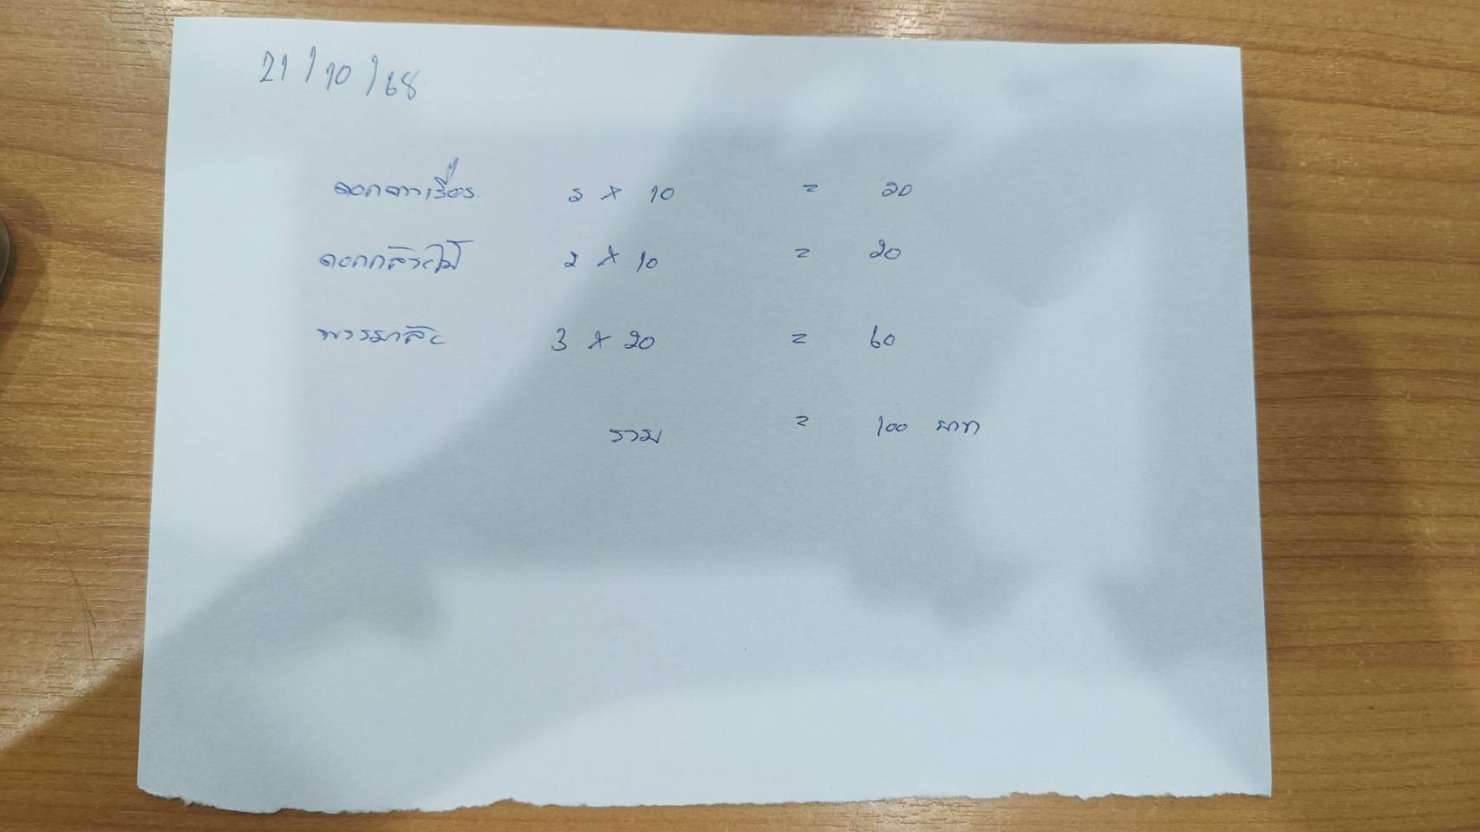 21/10/68
ดอกดาวเรือง 2 x 10 = 20
ดอกกล้วยไม้ 2 x 10 = 20
พวงมาลัย 3 x 20 = 60
รวม = 100 บาท